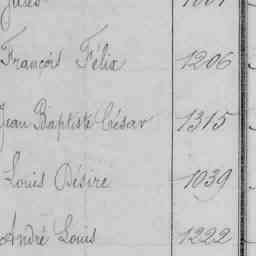 François Félix 1206
Jean Baptiste César 1315
Louis Désiré 1039
André Louis 1222